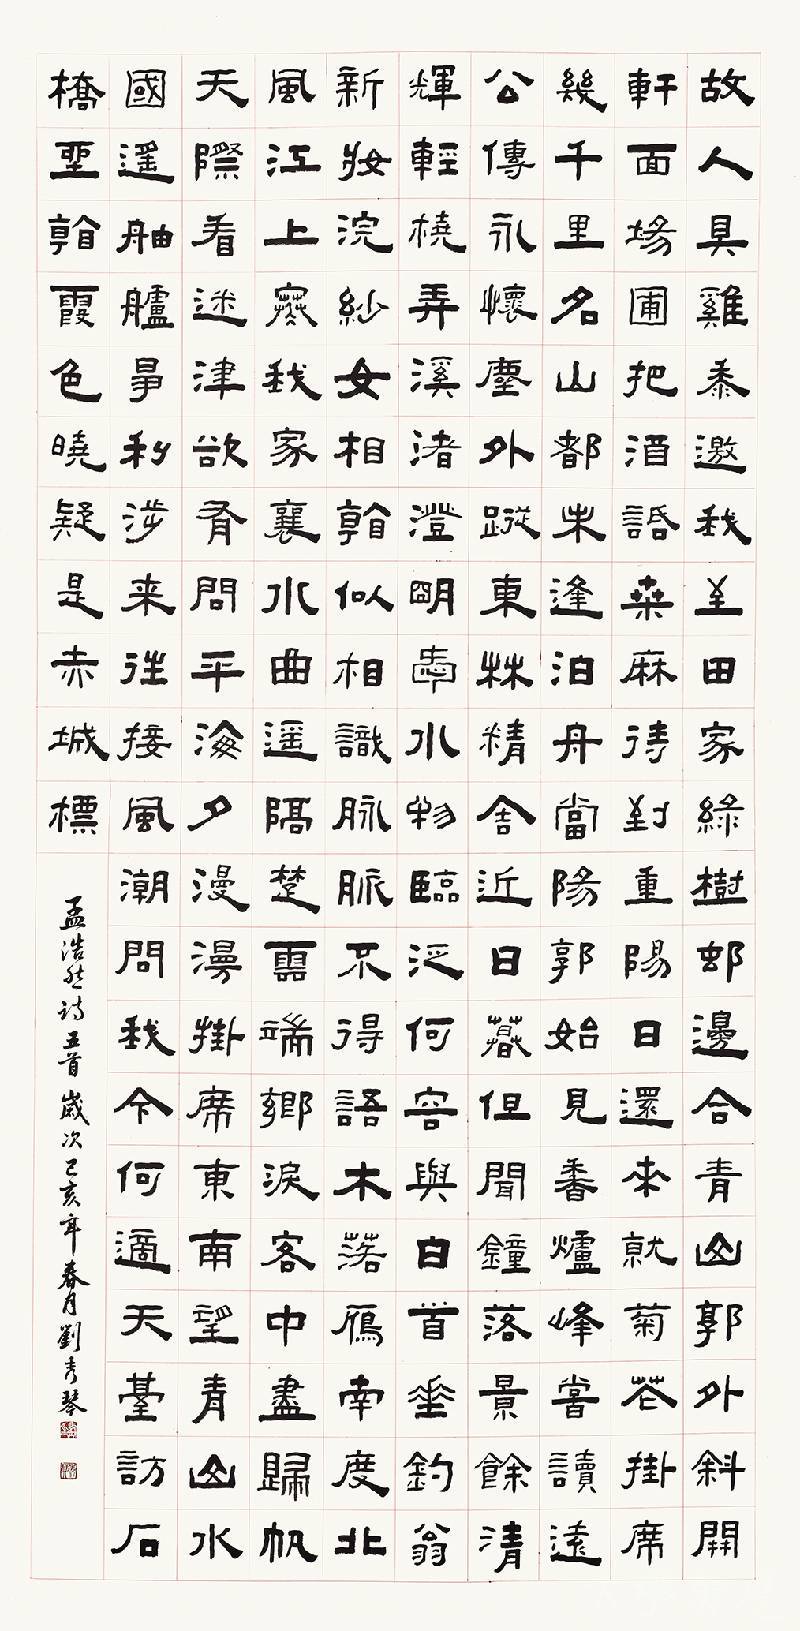 故人具雞黍邀我至田家綠樹邨邊合青山郭外斜開
軒面場圃把酒話桑麻待到重陽日還來就菊花掛席
幾千里名山都未逢泊舟當陽郭始見香爐峰嘗讀遠
公傳永懷塵外蹤東林精舍近日暮但聞鐘落景餘清
輝輕橈弄溪渚澄明愛水物臨泛何容與白首垂釣翁
新妝浣紗女相看似相識脉脈不得語木落雁南度北
風江上寒我家襄水曲遙隔楚雲端鄉淚客中盡歸帆
天際看迷津欲有問平海夕漫漫掛席東南望青山水
國遙舳艫爭利涉来往接風潮問我今何適天臺訪石
橋坐看霞色曉疑是赤城標
孟浩然詩五首歲次己亥年春月劉秀琴